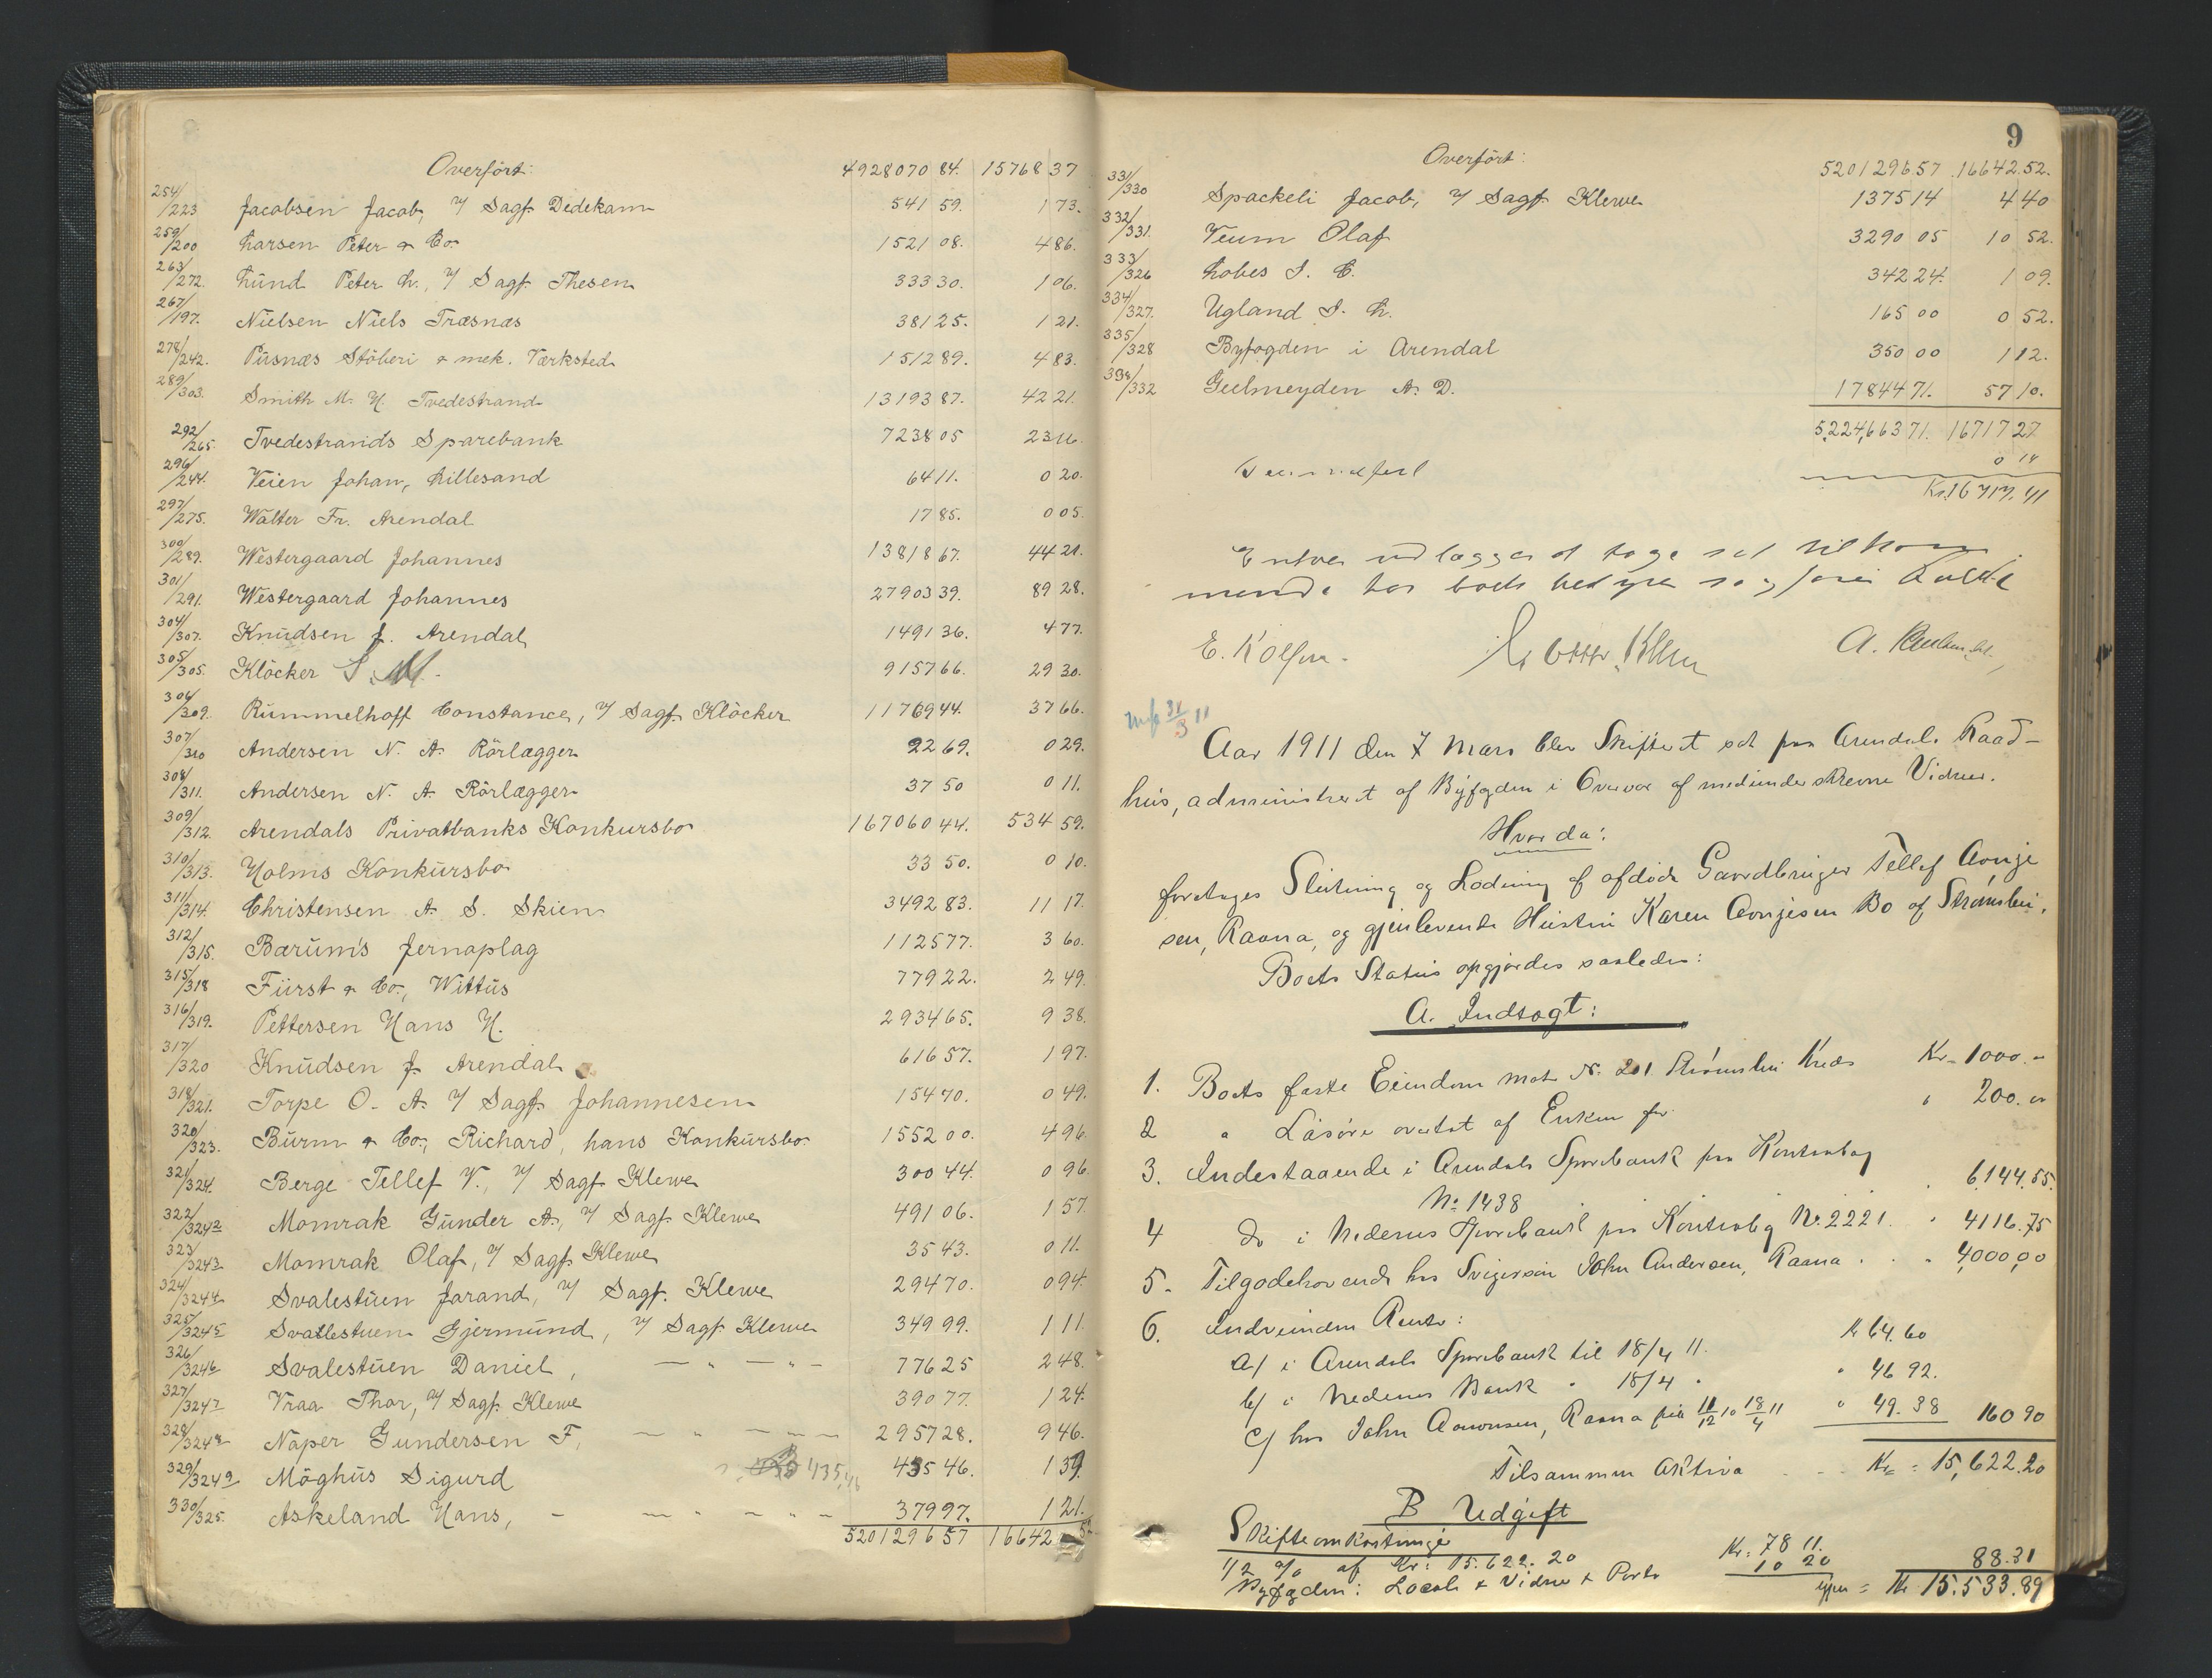 Overført: 4928070 84. 15768 37
254/223 Jacobsen Jacob, v/ Sagf. Dedekam 541 59. 1 73.
259/200 Larsen Peter & Co. 1521 08. 4 86.
263/272. Lund Peter L., v/ Sagf. Thesen 333 30. 1 06.
267/197. Nielsen Niels Træsnæs 381 25. 1 21.
278/242. Pusnæs Støberi & mek. Værksted 1512 89. 4 83.
289/303. Smith M. H. Tvedestrand 13193 87. 42 21.
292/265. Tvedestrands Sparebank 7238 05 23 16.
296/244. Veien Johan, Lillesand 64 11. 0 20.
297/275. Walter Fr. Arendal 17 85. 0 05.
300/289. Westergaard Johannes 13818 67. 44 21.
301/291. Westergaard Johannes 27903 39. 89 28.
304/307. Knudsen J. Arendal 1491 36. 4 77.
305/305. Kløcker S. M. 9157 66. 29 30.
306/309. Rummelhoff Constance, v/ Sagf. Kløcker 11769 44. 37 66.
307/310 Andersen N. A. Rørlægger 92 69. 0 29.
308/311. Andersen N. A. Rørlægger 37 50 0 11.
309/312. Arendals Privatbanks Konkursbo 167060 44. 534 59.
310/313. Holms Konkursbo 33 50. 0 10.
311/314. Christensen A. S. Skien 3492 83. 11 17.
312/315. Bærums Jernoplag 1125 77. 3 60.
315/318 Fürst & Co., Wittus 779 22. 2 49.
316/319. Pettersen Hans H. 2934 65. 9 38.
317/320 Knudsen J. Arendal 616 57. 1 97.
318/321. Torpe O. A. v/ Sagf. Johannesen 154 70. 0 49.
320/323. Burm & Co., Richard, hans Konkursbo 1552 00. 4 96.
321/324. Berge Tellef V., v/ Sagf. Klewe 300 44. 0 96.
322/324 2 Momrak Gunder A., v/ Sagf. Klewe 491 06. 1 57
323/324 3 Momrak Olaf, v/ Sagf. Klewe 35 43. 0 11.
324/324 4 Svalestuen Jarand, v/ Sagf. Klewe 294 70. 0 94.
325/324 5 Svalestuen Gjermund, v/ Sagf. Klewe 349 99. 1 11
326/324 6 Svalestuen Daniel, — " — " — 776 25 2 48.
327/324 7 Vraa Thor, v/ Sagf. Klewe 390 77. 1 24.
328/324 8 Naper Gundersen F, — " — " — 2957 28. 9 46.
329/324 9 Møghus Sigurd 435,46 435 46. 1 39.
330/325. Askeland Hans, — " — " — 379 97. 1 21.
5201296 57 16642 52
9
Overført: 5201296.57 16642.52.
331/330 Spockeli Jacob, v/ Sagf. Klewe 1375 14 4 40
332/331. Veum Olaf 3290 05 10 52.
333/326 Lobes I. C. 342 24. 1 09.
334/327. Ugland I. L. 165 00 0 52.
335/328 Byfogden i Arendal 350 00 1 12.
398/332 Geelmeyden A. D. 17844 71. 57 10.
5,224,663 71. 16717 27
0 14
Kr. 16717.41
Enhver udlægges at tage sit tilkom
mende hos boets bestyrer
E. Kolfsen. A.
31/3 11
Aar 1911 den 7 Mars blev Skifteret sat paa Arendals Raad-
hus, administreret af Byfogden i Overvær af medunderskrevne Vidner.
Hvorda:
foretages Slutning og Lodning af afdøde Gaardbruger Tellef Aanje
sen, Raana, og gjenlevende Hustru Karen Aanjesen Bo af Strømsbu.
Boets Status opgjordes saaledes:
A. Indtægt:
1. Boets faste Eiendom mat. N. 201 Strømsbu Kreds Kr. 1000. "
2 " Løsøre overtat af Enken for " 200. "
3. Indestaaende i Arendals Sparebank paa Kontrabog
No. 1438 " 6144.55.
4 do i Nedenes Sparebank paa Kontrabog No. 2221. " 4116.75
5. Tilgodehavende hos Svigersøn John Andersen, Raana . . " 4,000,00
6. Indvundne Renter:
a/ i Arendals Sparebank til 18/4 11. Kr 64.60
b/ i Nedenes Bank " 18/4 " " 46 92.
c/ hos John Aanonsen, Raana fra 11/12 10 18/4 11 " 49.38 160 90
Tilsammen Aktiva . . . Kr. = 15,622.20
B Udgift
Skifteomkostninger
1/2 % af Kr: 15.622.20 Kr: 78 11.
Byfogden: Locale & Vidner & Porto 10 20 88.31
igjen = Kr 15.533.89